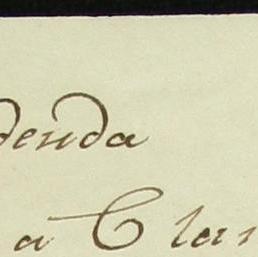 denda
a Clar